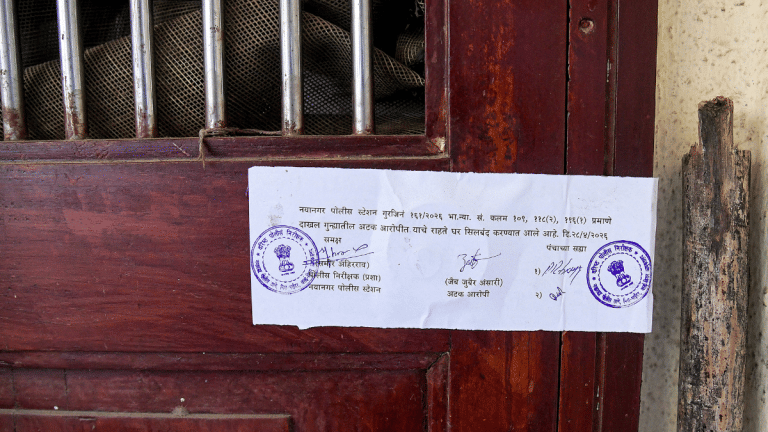 नयानगर पोलीस स्टेशन गुरजिनं १६१/२०२६ भा.न्या. सं. कलम १०९, ११८(२), १९६(१) प्रमाणे
दाखल गुन्ह्यातील अटक आरोपीत याचे राहते घर सिलबंद करण्यात आले आहे. दि.२८/४/२०२६
समक्ष पंचाच्या सह्या
अहिरराव)
पोलीस निरीक्षक (प्रशा) (जैब जुबेर अंसारी) १)
नयानगर पोलीस स्टेशन अटक आरोपी २)